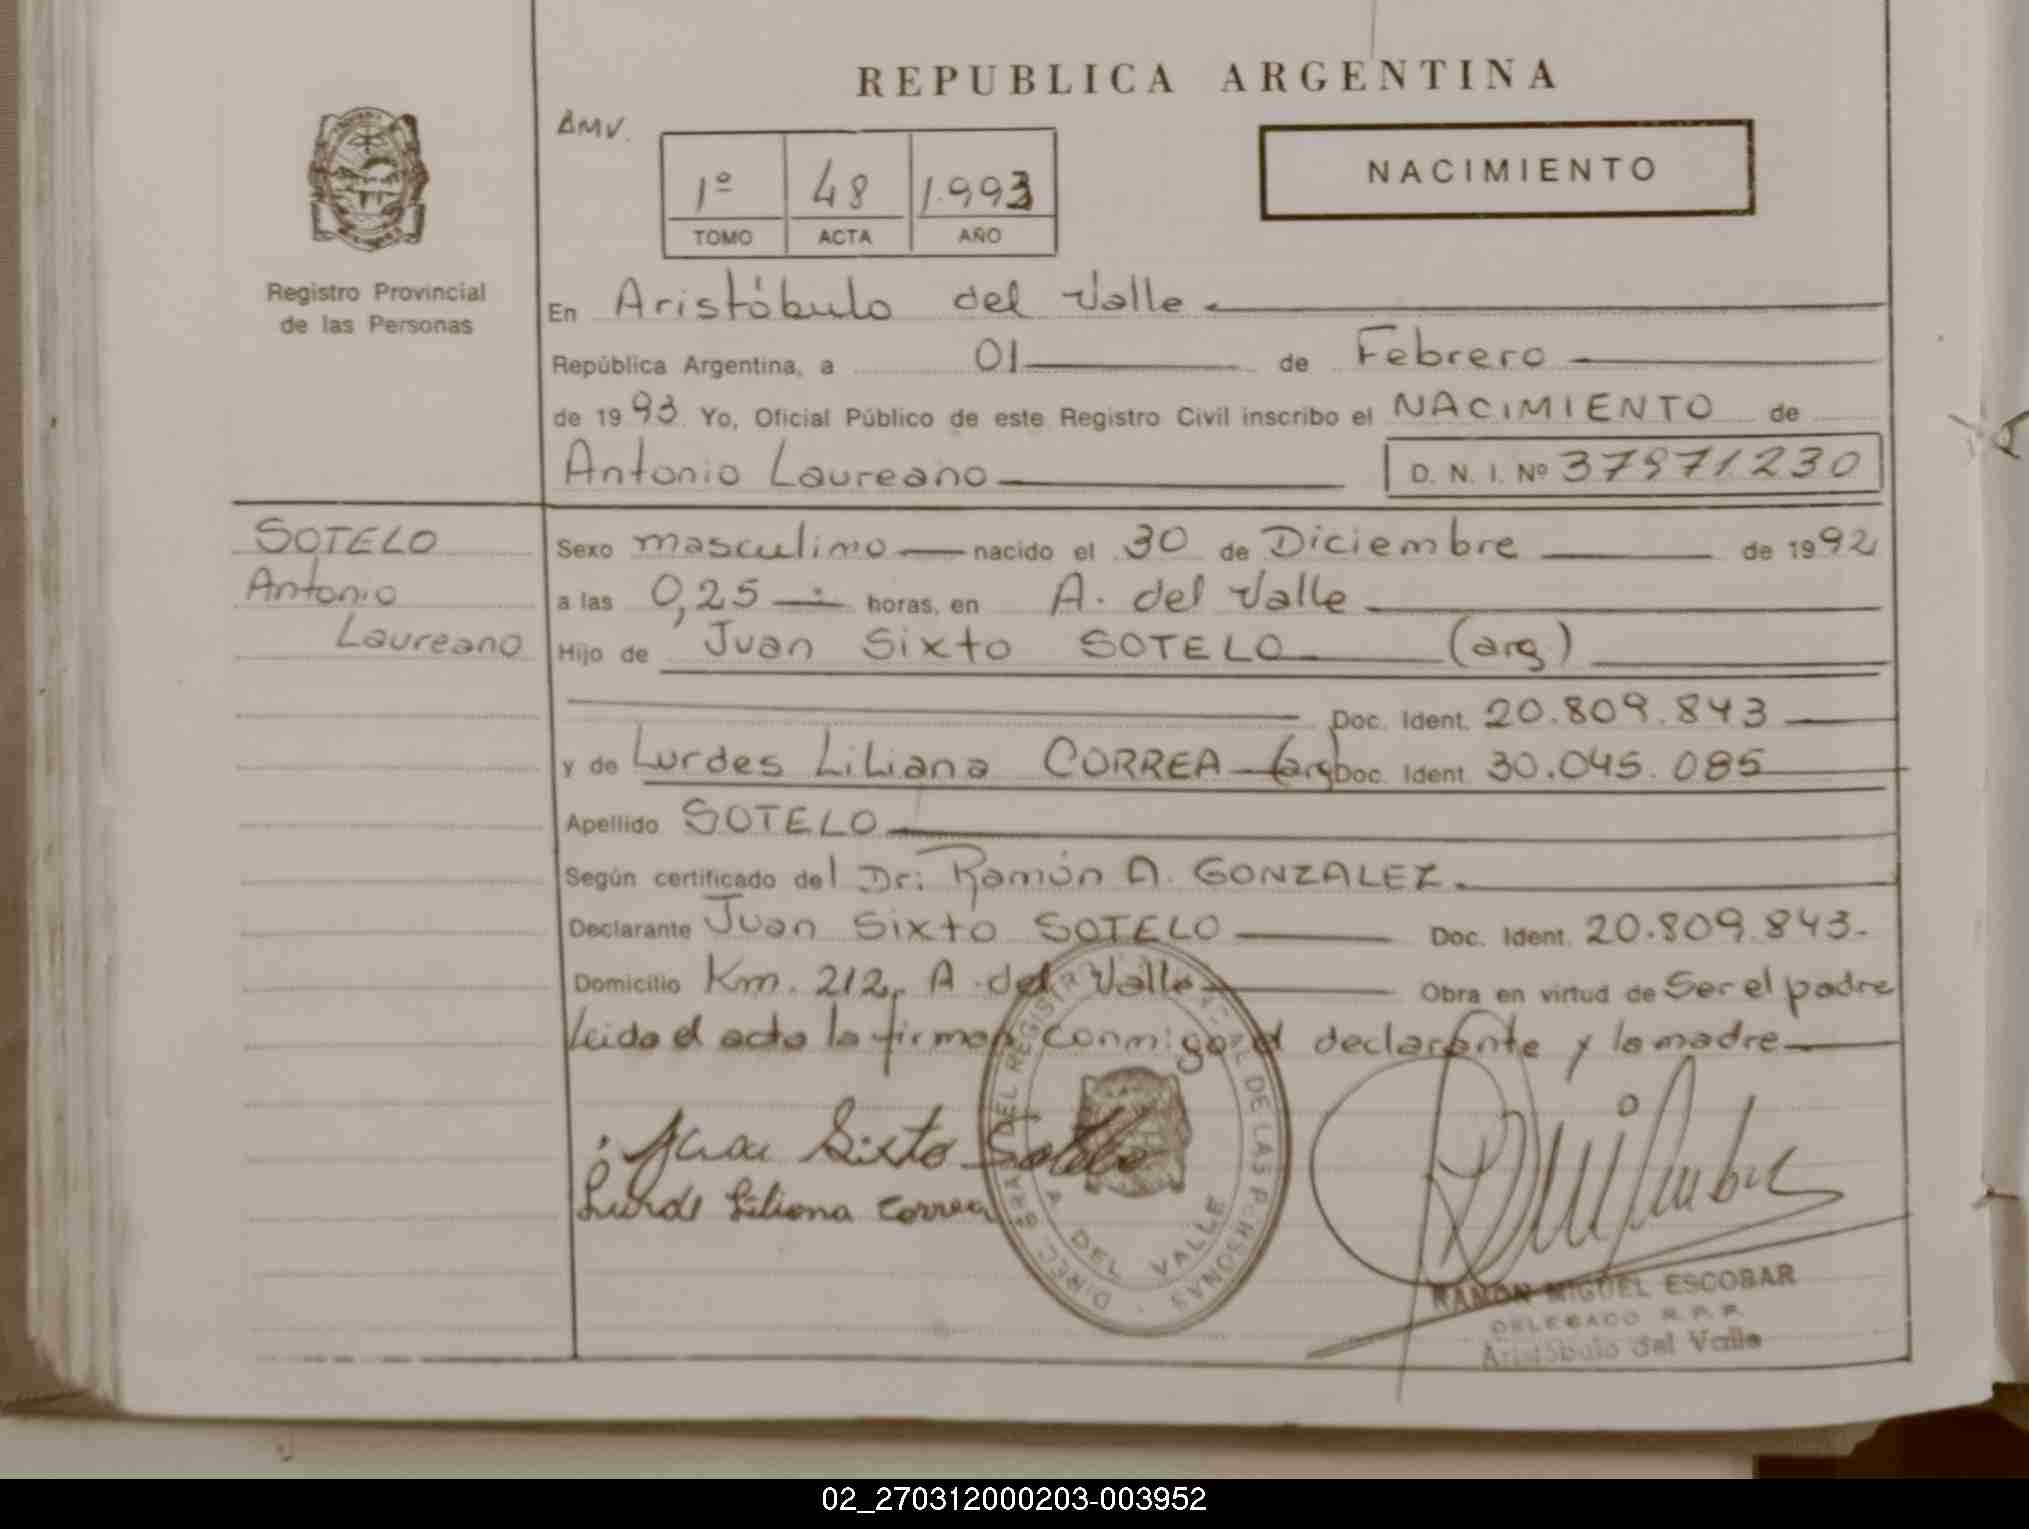 REPUBLICA ARGENTINA
AMV.
1º 48 1.993
TOMO ACTA AÑO
NACIMIENTO
Registro Provincial
de las Personas
En Aristóbulo del Valle
República Argentina, a 01 de Febrero
de 1993 Yo, Oficial Público de este Registro Civil inscribo el NACIMIENTO de
Antonio Laureano D. N. I. Nº 37971230
SOTELO
Antonio
Laureano
Sexo masculino nacido el 30 de Diciembre de 1992
a las 0,25 horas, en A. del Valle
Hijo de Juan Sixto SOTELO (arg)
Doc. Ident. 20.809.843
y de Lurdes Liliana CORREA (arg) Doc. Ident. 30.045.085
Apellido SOTELO
Según certificado del Dr: Ramón A. GONZALEZ.
Declarante Juan Sixto SOTELO Doc. Ident. 20.809.843.
Domicilio Km. 212, A. del Valle Obra en virtud de Ser el padre
Leida el acta la firman conmigo el declarante y la madre
Juan Sixto Sotelo
Lurde Liliana Correa
A. DEL VALLE
RAMON MIGUEL ESCOBAR
DELEGADO R. P. P.
Aristóbulo del Valle
02_270312000203-003952